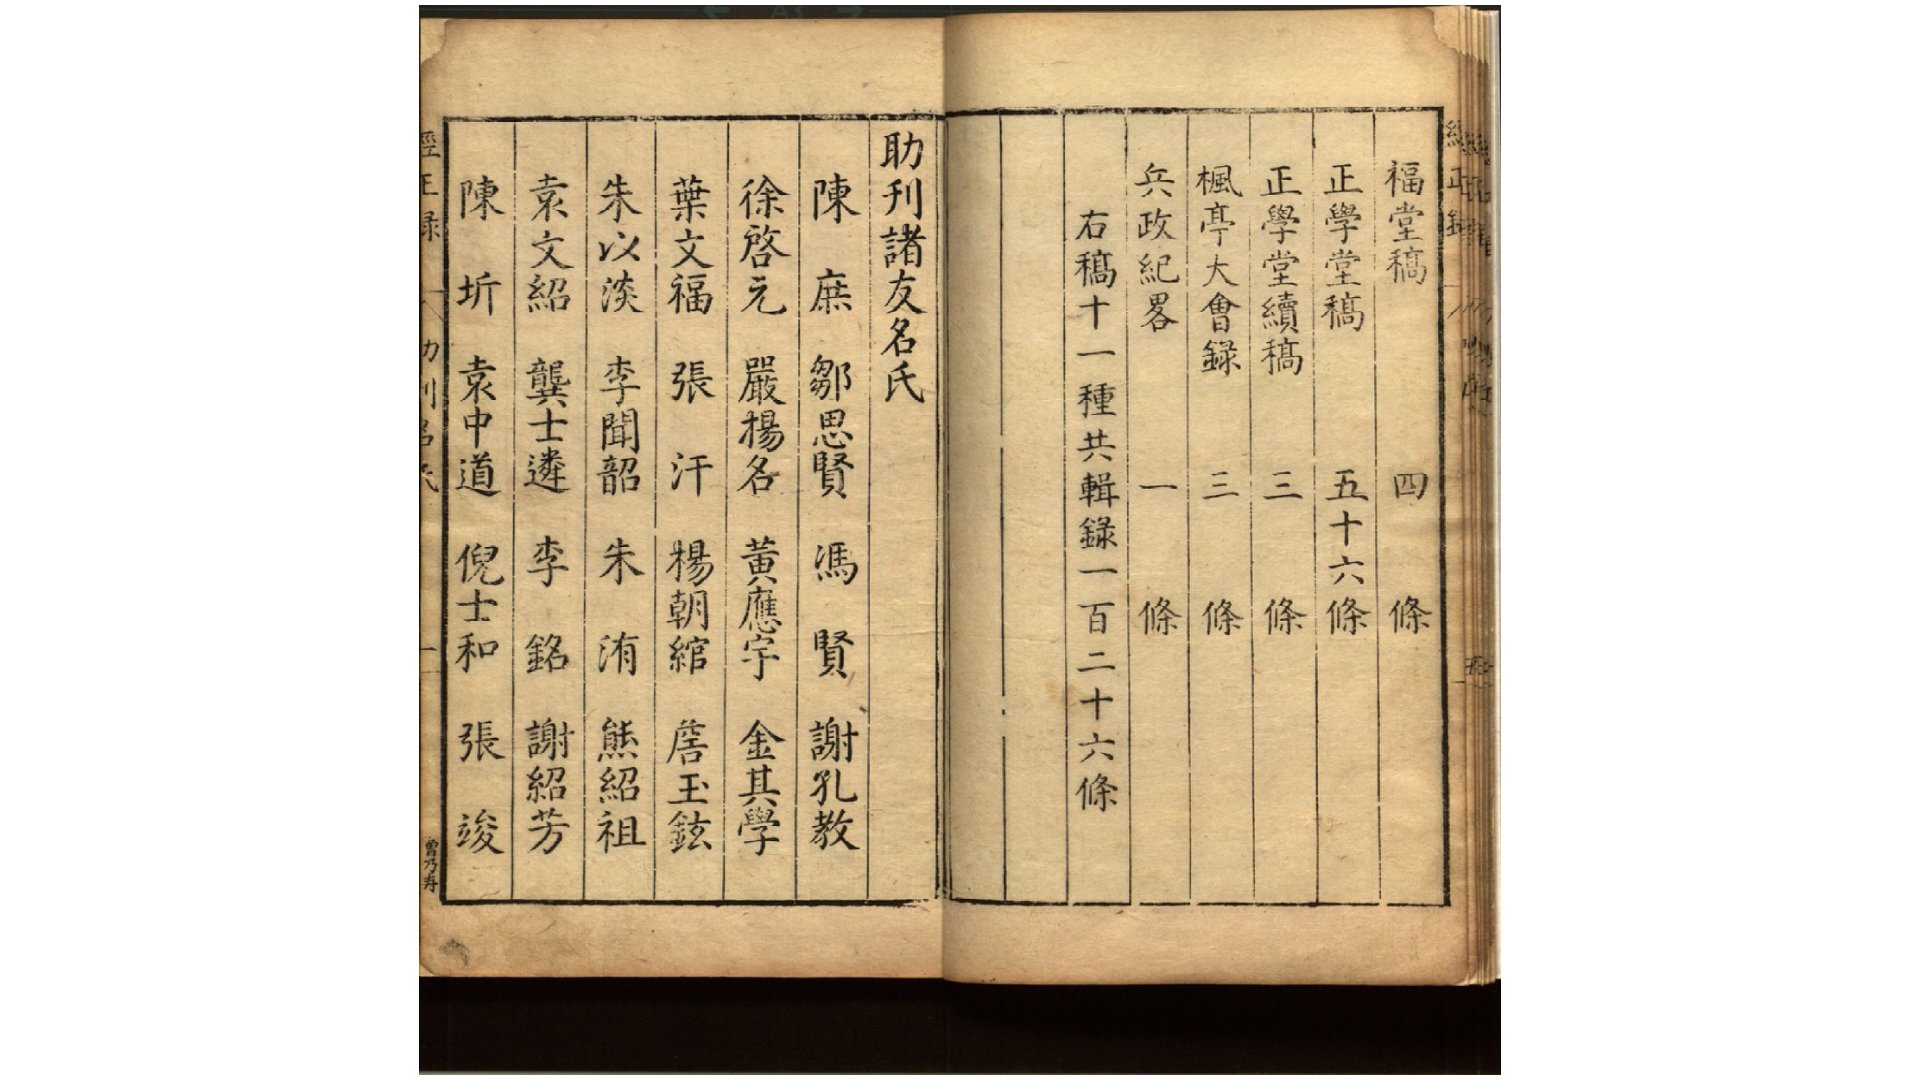 福堂稿 四條
正學堂稿 五十六條
正學堂續稿 三條
楓亭大會録 三條
兵政紀畧 一條
右稿十一種共輯録一百二十六條
助刋諸友名氏
陳庶 鄒思賢 馮賢 謝孔教
徐啓元 嚴楊名 黃應宇 金其學
葉文福 張汗 楊朝綰 詹玉鉉
朱以淡 李聞韶 朱洧 熊紹祖
袁文紹 龔士遴 李銘 謝紹芳
陳圻 袁中道 倪士和 張竣
經正録 助刋名氏 一 曾乃寿